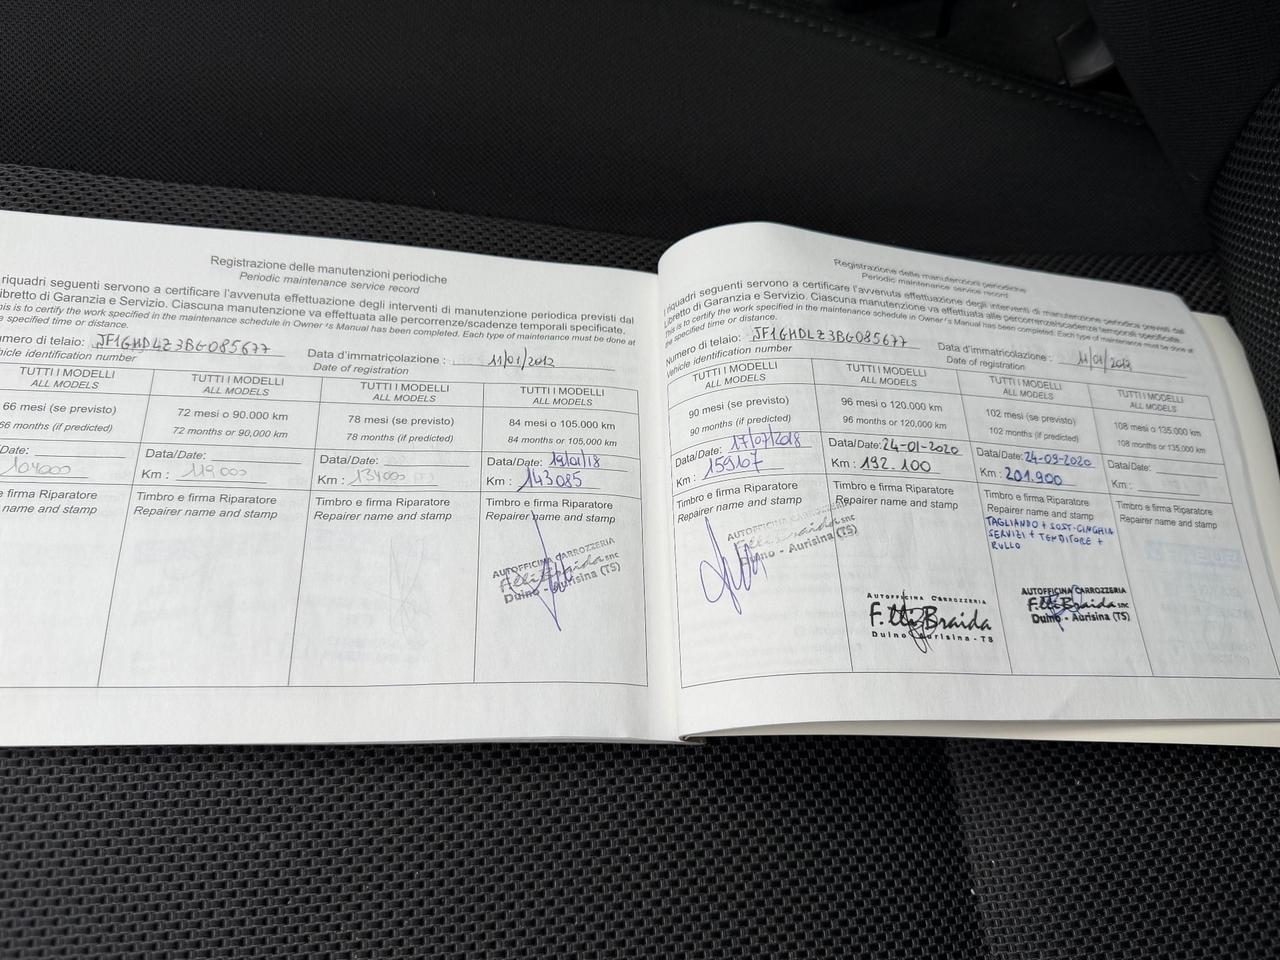 Registrazione delle manutenzioni periodiche
Periodic maintenance service record
riquadri seguenti servono a certificare l'avvenuta effettuazione degli interventi di manutenzione periodica previsti dal
ibretto di Garanzia e Servizio. Ciascuna manutenzione va effettuata alle percorrenze/scadenze temporali specificate.
his is to certify the work specified in the maintenance schedule in Owner's Manual has been completed. Each type of maintenance must be done at
e specified time or distance.
umero di telaio: JF1GHDLZ3BG085677 Data d'immatricolazione : 11/01/2012
hicle identification number Date of registration
TUTTI I MODELLI
ALL MODELS
66 mesi (se previsto)
66 months (if predicted)
/Date:
104000
e firma Riparatore
name and stamp
TUTTI I MODELLI
ALL MODELS
72 mesi o 90.000 km
72 months or 90,000 km
Data/Date:
Km : 119000
Timbro e firma Riparatore
Repairer name and stamp
TUTTI I MODELLI
ALL MODELS
78 mesi (se previsto)
78 months (if predicted)
Data/Date:
Km : 134000
Timbro e firma Riparatore
Repairer name and stamp
TUTTI I MODELLI
ALL MODELS
84 mesi o 105.000 km
84 months or 105,000 km
Data/Date: 19/01/18
Km : 143085
Timbro e firma Riparatore
Repairer name and stamp
AUTOFFICINA CARROZZERIA
F.lli Braida snc
Duino - Aurisina (TS)
Registrazione delle manutenzioni periodiche
Periodic maintenance service record
I riquadri seguenti servono a certificare l'avvenuta effettuazione degli interventi di manutenzione periodica previsti dal
Libretto di Garanzia e Servizio. Ciascuna manutenzione va effettuata alle percorrenze/scadenze temporali specificate.
This is to certify the work specified in the maintenance schedule in Owner's Manual has been completed. Each type of maintenance must be done at
the specified time or distance.
Numero di telaio: JF1GHDLZ3BG085677 Data d'immatricolazione : 11/01/2012
Vehicle identification number Date of registration
TUTTI I MODELLI
ALL MODELS
90 mesi (se previsto)
90 months (if predicted)
Data/Date: 17/07/2018
Km : 159107
Timbro e firma Riparatore
Repairer name and stamp
AUTOFFICINA CARROZZERIA
F.lli Braida snc
Duino - Aurisina (TS)
TUTTI I MODELLI
ALL MODELS
96 mesi o 120.000 km
96 months or 120,000 km
Data/Date: 24-01-2020
Km : 192.100
Timbro e firma Riparatore
Repairer name and stamp
AUTOFFICINA CARROZZERIA
F.lli Braida
Duino Aurisina - TS
TUTTI I MODELLI
ALL MODELS
102 mesi (se previsto)
102 months (if predicted)
Data/Date: 24-09-2020
Km : 201.900
Timbro e firma Riparatore
Repairer name and stamp
TAGLIANDO + SOST. CINGHIA
SERVIZI + TENDITORE +
RULLO
AUTOFFICINA CARROZZERIA
F.lli Braida snc
Duino - Aurisina (TS)
TUTTI I MODELLI
ALL MODELS
108 mesi o 135.000 km
108 months or 135,000 km
Data/Date:
Km :
Timbro e firma Riparatore
Repairer name and stamp